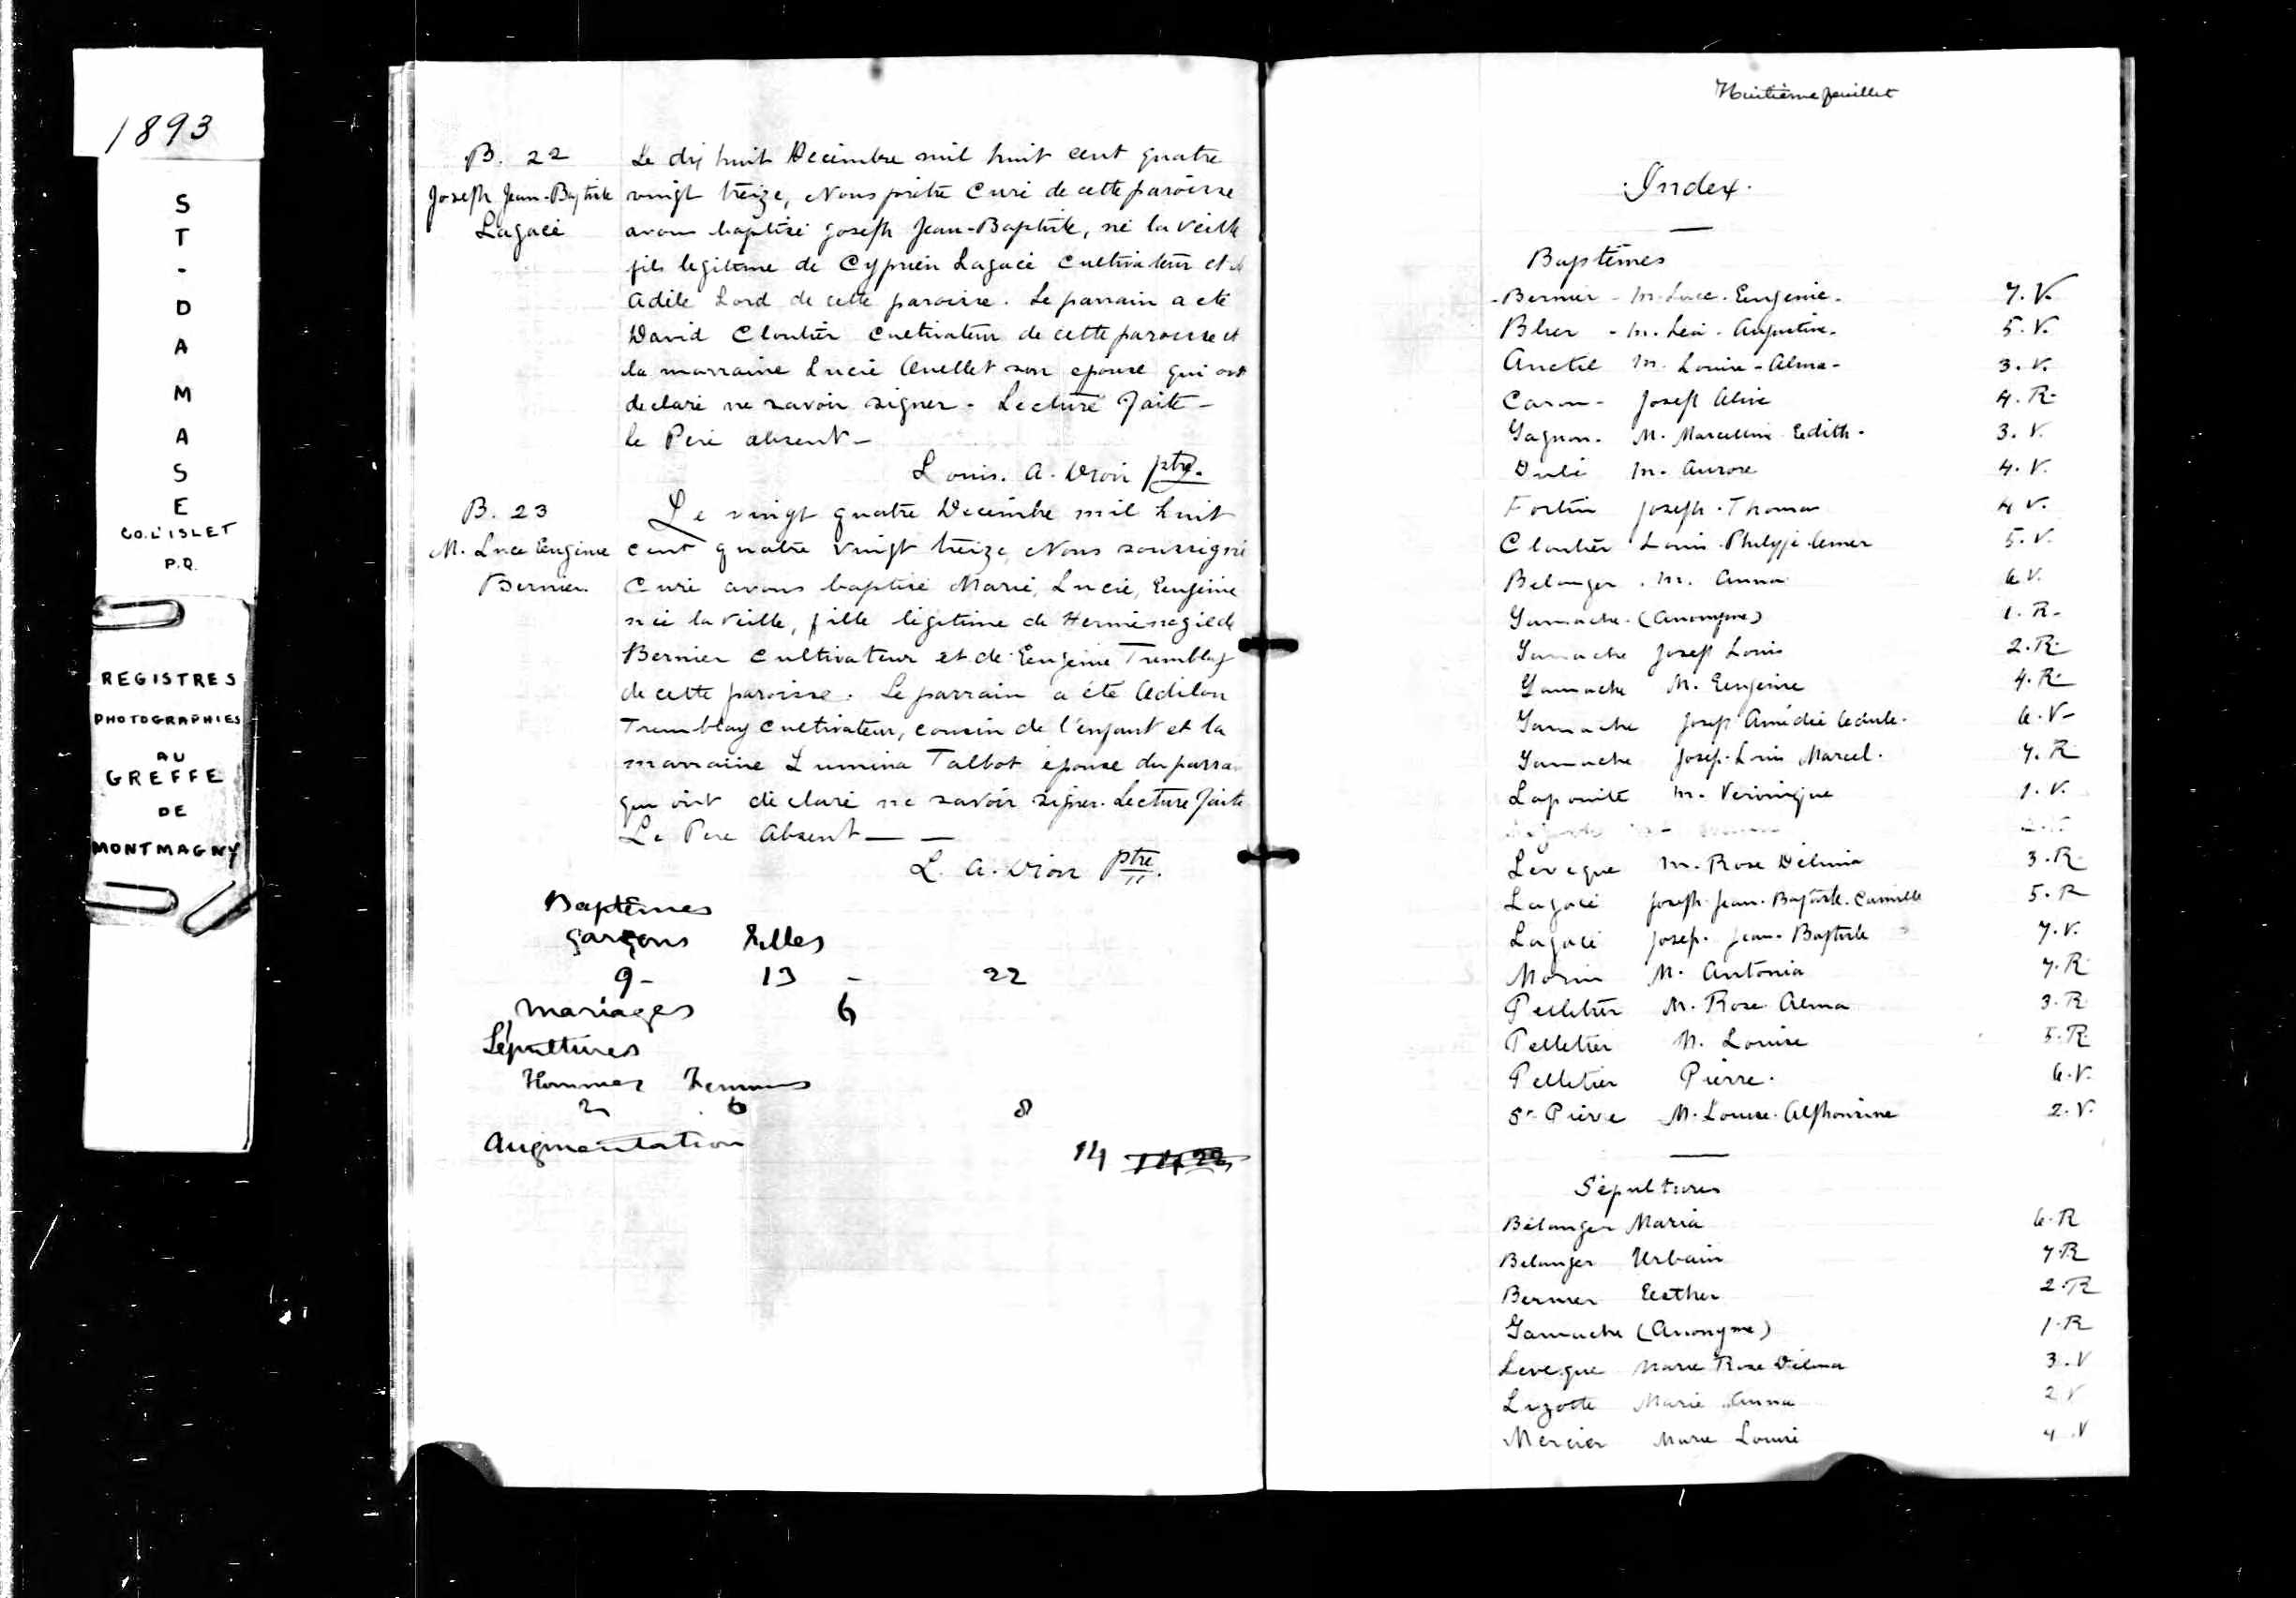 1893
ST-DAMASE
CO. L'ISLET
P.Q.
REGISTRES
PHOTOGRAPHIES
AU
GREFFE
DE
MONTMAGNY
B. 22
Joseph Jean-Baptiste
Lagacé
Le dix huit Decembre mil huit cent quatre
vingt treize, Nous prêtre Curé de cette paroisse
avons baptisé Joseph Jean-Baptiste, né la veille
fils legitime de Cyprien Lagacé Cultivateur et de
Adèle Lord de cette paroisse. Le parrain a été
David Cloutier Cultivateur de cette paroisse et
la marraine Lucie Ouellet son epouse qui ont
declaré ne savoir signer - Lecture faite -
le Père absent -
Louis. A. Dion ptre.
B. 23
M. Luce Eugénie
Bernier.
Le vingt quatre Decembre mil huit
cent quatre vingt treize, Nous soussigné
Curé avons baptisé Marie, Lucie, Eugénie
née la veille, fille légitime de Herménegilde
Bernier Cultivateur et de Eugénie Tremblay
de cette paroisse. Le parrain a été Odilon
Tremblay Cultivateur, cousin de l'enfant et la
marraine Lumina Talbot épouse du parrain
qui ont déclaré ne savoir signer. Lecture faite
Le Pere Absent — —
L. A. Dion Ptre.
Baptêmes
Garçons Filles
9 - 13 - 22
Mariages 6
Sépultures
Hommes Femmes
2 6 8
Augmentation 14
Huitième feuillet
Index.
Baptêmes
Bernier - M. Luce. Eugenie. 7. V.
Blier - M. Léa. Augustine. 5. V.
Anctil M. Louise - Alma - 3. V.
Caron - Joseph 4. R.
Gagnon. M. Marcelline Edith. 3. V.
Dubé M. Aurore 4. V.
Fortin Joseph. Thomas 4 V.
Cloutier Louis. Philippe. 5. V.
Belanger. M. Anna 6 V.
Gamache. (Anonyme) 1. R.
Gamache Joseph Louis 2. R.
Gamache M. Eugénie 4. R.
Gamache Josep Amédée 6. V.
Gamache Josep. Louis Marcel. 7. R.
Lapointe M. Veronique 1. V.
Leveque M. Rose Délima 3. R.
Lagacé Joseph. Jean. Baptiste. Camille 5. R
Lagacé Josep. Jean. Baptiste 7. V.
Morin M. Antonia 7. R.
Pelletier M. Rose Alma 3. R.
Pelletier M. Louise 5. R.
Pelletier Pierre. 6. V.
St Pierre M. Louise. Alphonsine 2. V.
Sépultures
Bélanger Maria 6. R
Belanger Urbain 7. R
Bernier Esther 2. R
Gamache (Anonyme) 1. R
Leveque Marie Rose Délima 3. V
Lizotte Marie Anna 2 V
Mercier Marie Louise 4. V